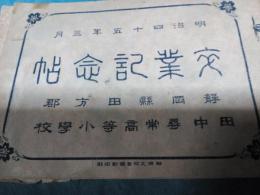 明治四十五年三月
卒業記念帖
静岡縣田方郡
田中尋常高等小學校